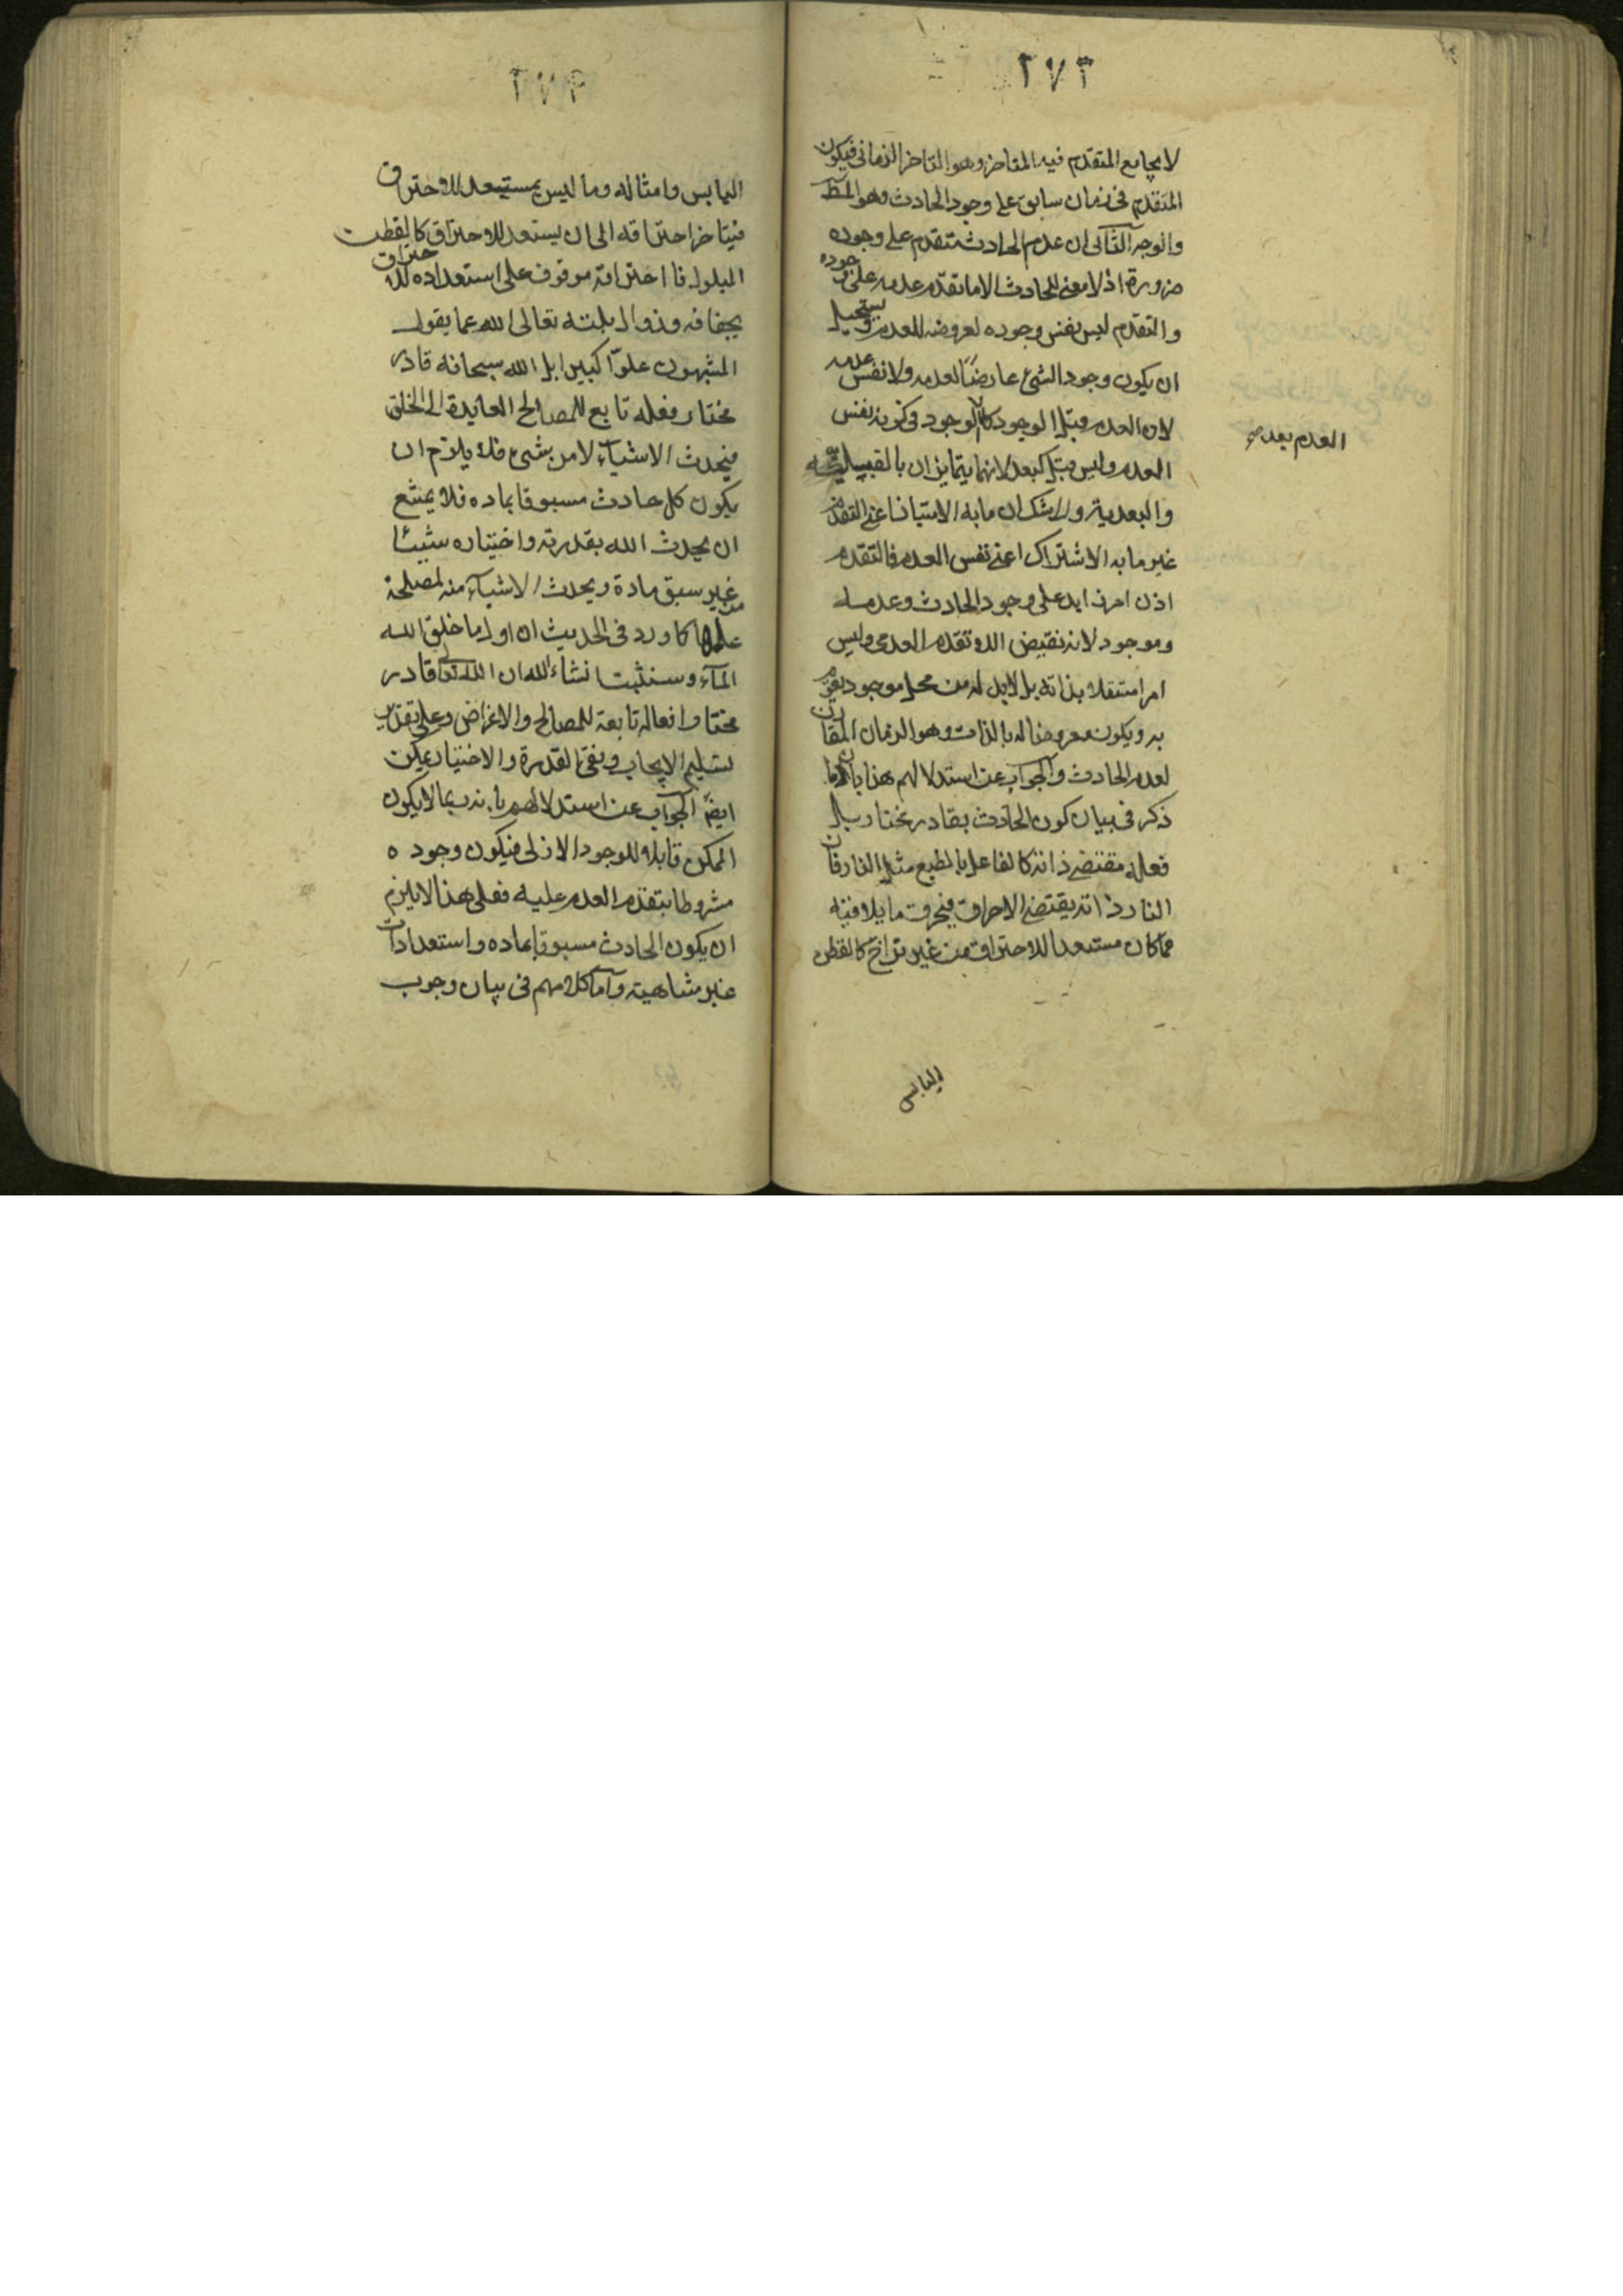 ٢٧٣
لا يجامع المتقدم فيه المتاخر وهو التاخر الزمانى فيكون
المتقدم فى زمان سابق على وجود الحادث وهو المط
والوجه الثانى ان عدم الحادث متقدم على وجوده
ضرورة اذ لا معنى للحادث الا ما تقدم عدمه على وجوده
والتقدم ليس نفس وجوده لعروضه للعدم ويستحيل
ان يكون وجود الشئ عارضا لعدمه ولا نفس عدمه
لان العدم قبل الوجود كالعدم بعد الوجود فى كونه نفس
العدم بعد صح
العدم وليس قبل كبعد لانهما يتمايزان بالقبيلية
والبعدية ولا شك ان ما به الامتياز اعنى التقدم
غير ما به الاشتراك اعنى نفس العدم فالتقدم
اذن امر زايد على وجود الحادث وعدمه
وموجود لانه نقيض اللاتقدم العدمى وليس
امرا مستقلا بذاته بل لابد له من محل موجود يقوم
به ويكون معروضا له بالذات وهو الزمان المقارن
لعدم الحادث والجواب عن استدلالهم هذا بان ما
ذكر فى بيان كون الحادث بقادر مختار بل
فعله مقتضى ذاته كالفاعل بالطبع مثل النار فان
النار ذاته يقتضى الاحراق فيحرق ما يلاقيه
مما كان مستعدا للاحتراق من غير تراخ كالقطن
اليابس
٢٧٤
اليابس وامثاله وما ليس بمستعد للاحتراق
فيتاخر احتراقه الى ان يستعد للاحتراق كالقطن
المبلول فا احتراقه موقوف على استعداده للاحتراق
بجفافه وزوال بلته تعالى الله عما يقول
المشبهون علوّا كبيرا بل الله سبحانه قادر
مختار وفعله تابع للمصالح العايدة الى الخلق
فيحدث الاشياء لا من شئ فلا يلزم ان
يكون كل حادث مسبوقا بماده فلا يمتنع
ان يحدث الله بقدرته واختياره شيئا
من غير سبق مادة ويحدث الاشياء منه لمصلحة
علمها كا ورد فى الحديث ان اول ما خلق الله
الماء وسنثبت انشاء الله ان الله تعالى قادر
مختار وافعاله تابعة للمصالح والاغراض وعلى تقدير
تسليم الايجاب ونفى القدرة والاختيار يمكن
ايضا الجواب عن استدلالهم بانه ربما لا يكون
الممكن قابلا للوجود الازلى فيكون وجوده
مشروطا بتقدم العدم عليه فعلى هذا لا يلزم
ان يكون الحادث مسبوقا بماده واستعدادات
غير متناهية واما كلامهم فى بيان وجوب